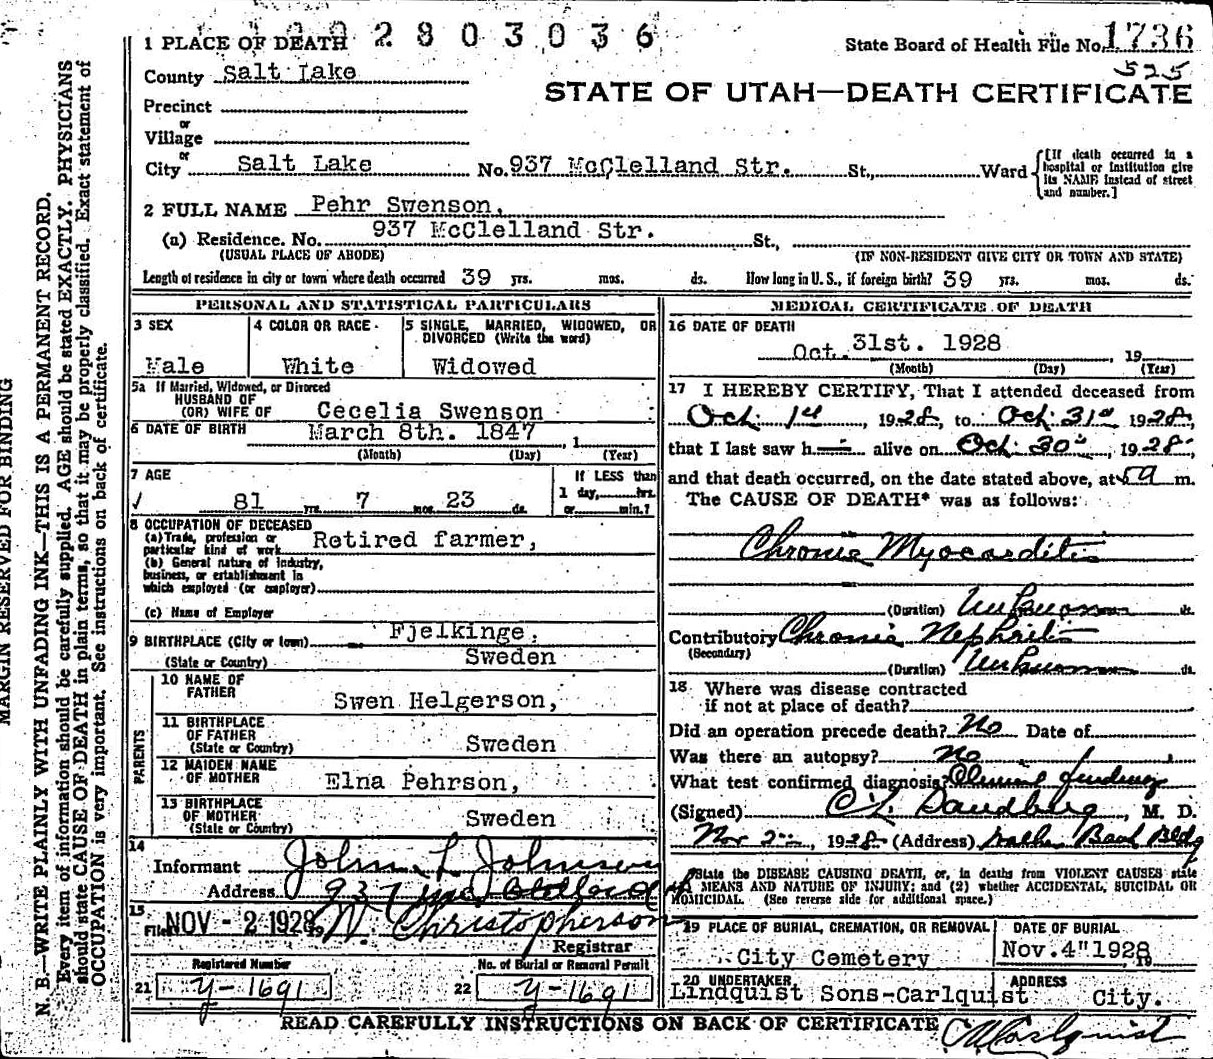 2803036
1 PLACE OF DEATH
State Board of Health File No. 1736
525
County Salt Lake
STATE OF UTAH—DEATH CERTIFICATE
Precinct
or
Village
or
City Salt Lake No. 937 McClelland Str. St., Ward
[If death occurred in a hospital or institution give its NAME instead of street and number.]
2 FULL NAME Pehr Swenson,
(a) Residence. No. 937 McClelland Str. St.,
(USUAL PLACE OF ABODE) (IF NON-RESIDENT GIVE CITY OR TOWN AND STATE)
Length of residence in city or town where death occurred 39 yrs. mos. ds. How long in U. S., if foreign birth? 39 yrs. mos. ds.
PERSONAL AND STATISTICAL PARTICULARS
3 SEX
Male
4 COLOR OR RACE
White
5 SINGLE, MARRIED, WIDOWED, OR
DIVORCED (Write the word)
Widowed
5a If Married, Widowed, or Divorced
HUSBAND OF
(OR) WIFE OF Cecelia Swenson
6 DATE OF BIRTH March 8th. 1847 , 1
(Month) (Day) (Year)
7 AGE
If LESS than
1 day, hrs.
or min.?
81 yrs. 7 mos. 23 ds.
8 OCCUPATION OF DECEASED
(a) Trade, profession or
particular kind of work Retired farmer,
(b) General nature of industry,
business, or establishment in
which employed (or employer)
(c) Name of Employer
9 BIRTHPLACE (City or town) Fjelkinge,
(State or Country) Sweden
PARENTS
10 NAME OF
FATHER Swen Helgerson,
11 BIRTHPLACE
OF FATHER
(State or Country) Sweden
12 MAIDEN NAME
OF MOTHER Elna Pehrson,
13 BIRTHPLACE
OF MOTHER
(State or Country) Sweden
14
Informant John L Johnson
Address 937 McClelland
15
Filed NOV - 2 1928 W. Christopherson
Registrar
Registered Number
21 y-1691
No. of Burial or Removal Permit
22 y-1691
MEDICAL CERTIFICATE OF DEATH
16 DATE OF DEATH
Oct. 31st. 1928 , 19
(Month) (Day) (Year)
17 I HEREBY CERTIFY, That I attended deceased from
Oct. 1st 1928, to Oct. 31st 1928,
that I last saw h alive on Oct. 30 , 1928,
and that death occurred, on the date stated above, at 5 a m.
The CAUSE OF DEATH* was as follows:
Chronic Myocarditis
(Duration) Unknown ds.
Contributory Chronic Nephritis
(Secondary)
(Duration) Unknown ds.
18 Where was disease contracted
if not at place of death?
Did an operation precede death? No Date of
Was there an autopsy? No
What test confirmed diagnosis? Clinical findings
(Signed) C. L. Sandberg, M. D.
Nov 2nd, 1928 (Address) Walker Bank Bldg
*State the DISEASE CAUSING DEATH, or, in deaths from VIOLENT CAUSES state
MEANS AND NATURE OF INJURY; and (2) whether ACCIDENTAL, SUICIDAL OR
HOMICIDAL. (See reverse side for additional space.)
19 PLACE OF BURIAL, CREMATION, OR REMOVAL
City Cemetery
DATE OF BURIAL
Nov. 4" 1928
20 UNDERTAKER
Lindquist Sons-Carlquist
ADDRESS
City.
READ CAREFULLY INSTRUCTIONS ON BACK OF CERTIFICATE
MARGIN RESERVED FOR BINDING
N. B.—WRITE PLAINLY WITH UNFADING INK—THIS IS A PERMANENT RECORD.
Every item of information should be carefully supplied. AGE should be stated EXACTLY. PHYSICIANS
should state CAUSE OF DEATH in plain terms, so that it may be properly classified. Exact statement of
OCCUPATION is very important. See instructions on back of certificate.